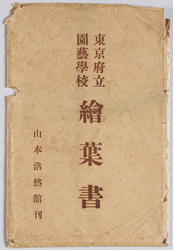 東京府立
園藝學校
繪葉書
山本浩然舘刊